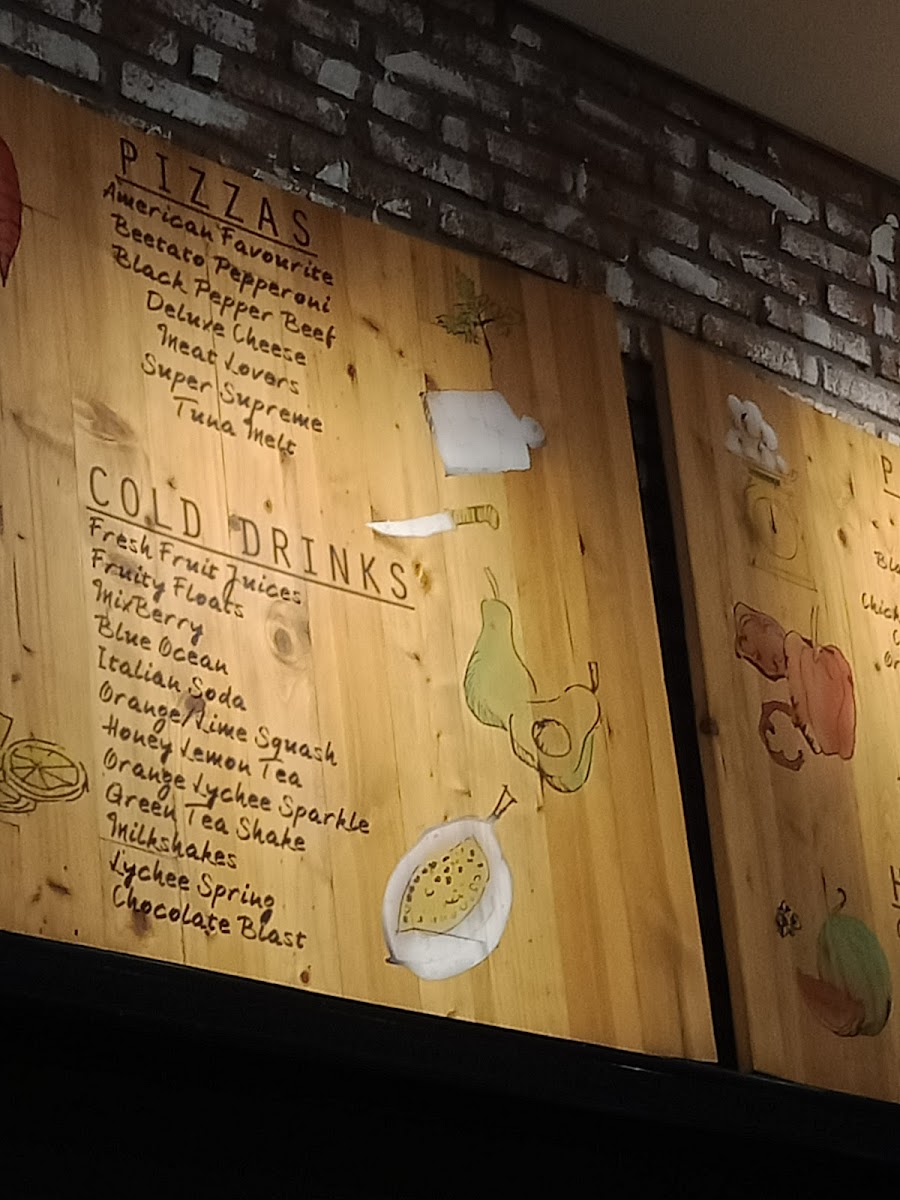 PIZZAS
American Favourite
Beetato Pepperoni
Black Pepper Beef
Deluxe Cheese
Meat Lovers
Super Supreme
Tuna Melt
COLD DRINKS
Fresh Fruit Juices
Fruity Floats
MixBerry
Blue Ocean
Italian Soda
Orange/Lime Squash
Honey Lemon Tea
Orange Lychee Sparkle
Green Tea Shake
Milkshakes
Lychee Spring
Chocolate Blast
P